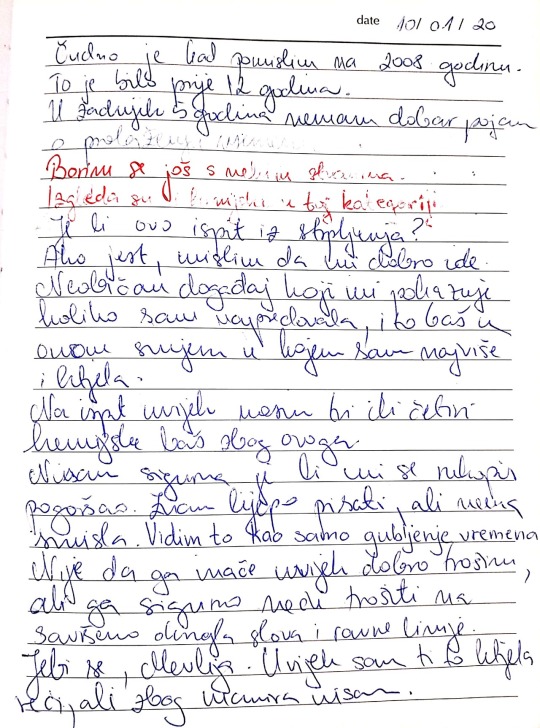 date 10/01/20
Čudno je kad pomislim na 2008 godinu.
To je bilo prije 12 godina.
U zadnjih 5 godina nemam dobar pojam
o
Borim se još s nekim stvarima.
Izgleda su hemijske u toj kategoriji
Je li ovo ispit iz strpljenja?
Ako jest, mislim da mi dobro ide.
Neobičan događaj koji mi pokazuje
koliko sam napredovala, i to baš u
onom smjeru u kojem sam najviše
i htjela.
Na ispit uvijek nosim tri ili četiri
hemijske baš zbog ovoga.
Nisam sigurna je li mi se rukopis
pogoršao. Znam lijepo pisati, ali nema
smisla. Vidim to kao samo gubljenje vremena
Nije da ga inače uvijek dobro trošim,
ali ga sigurno neću trošiti na
savršeno okrugla slova i ravne linije.
Jebi se, Mevlija. Uvijek sam ti to htjela
reći, ali zbog manira nisam.